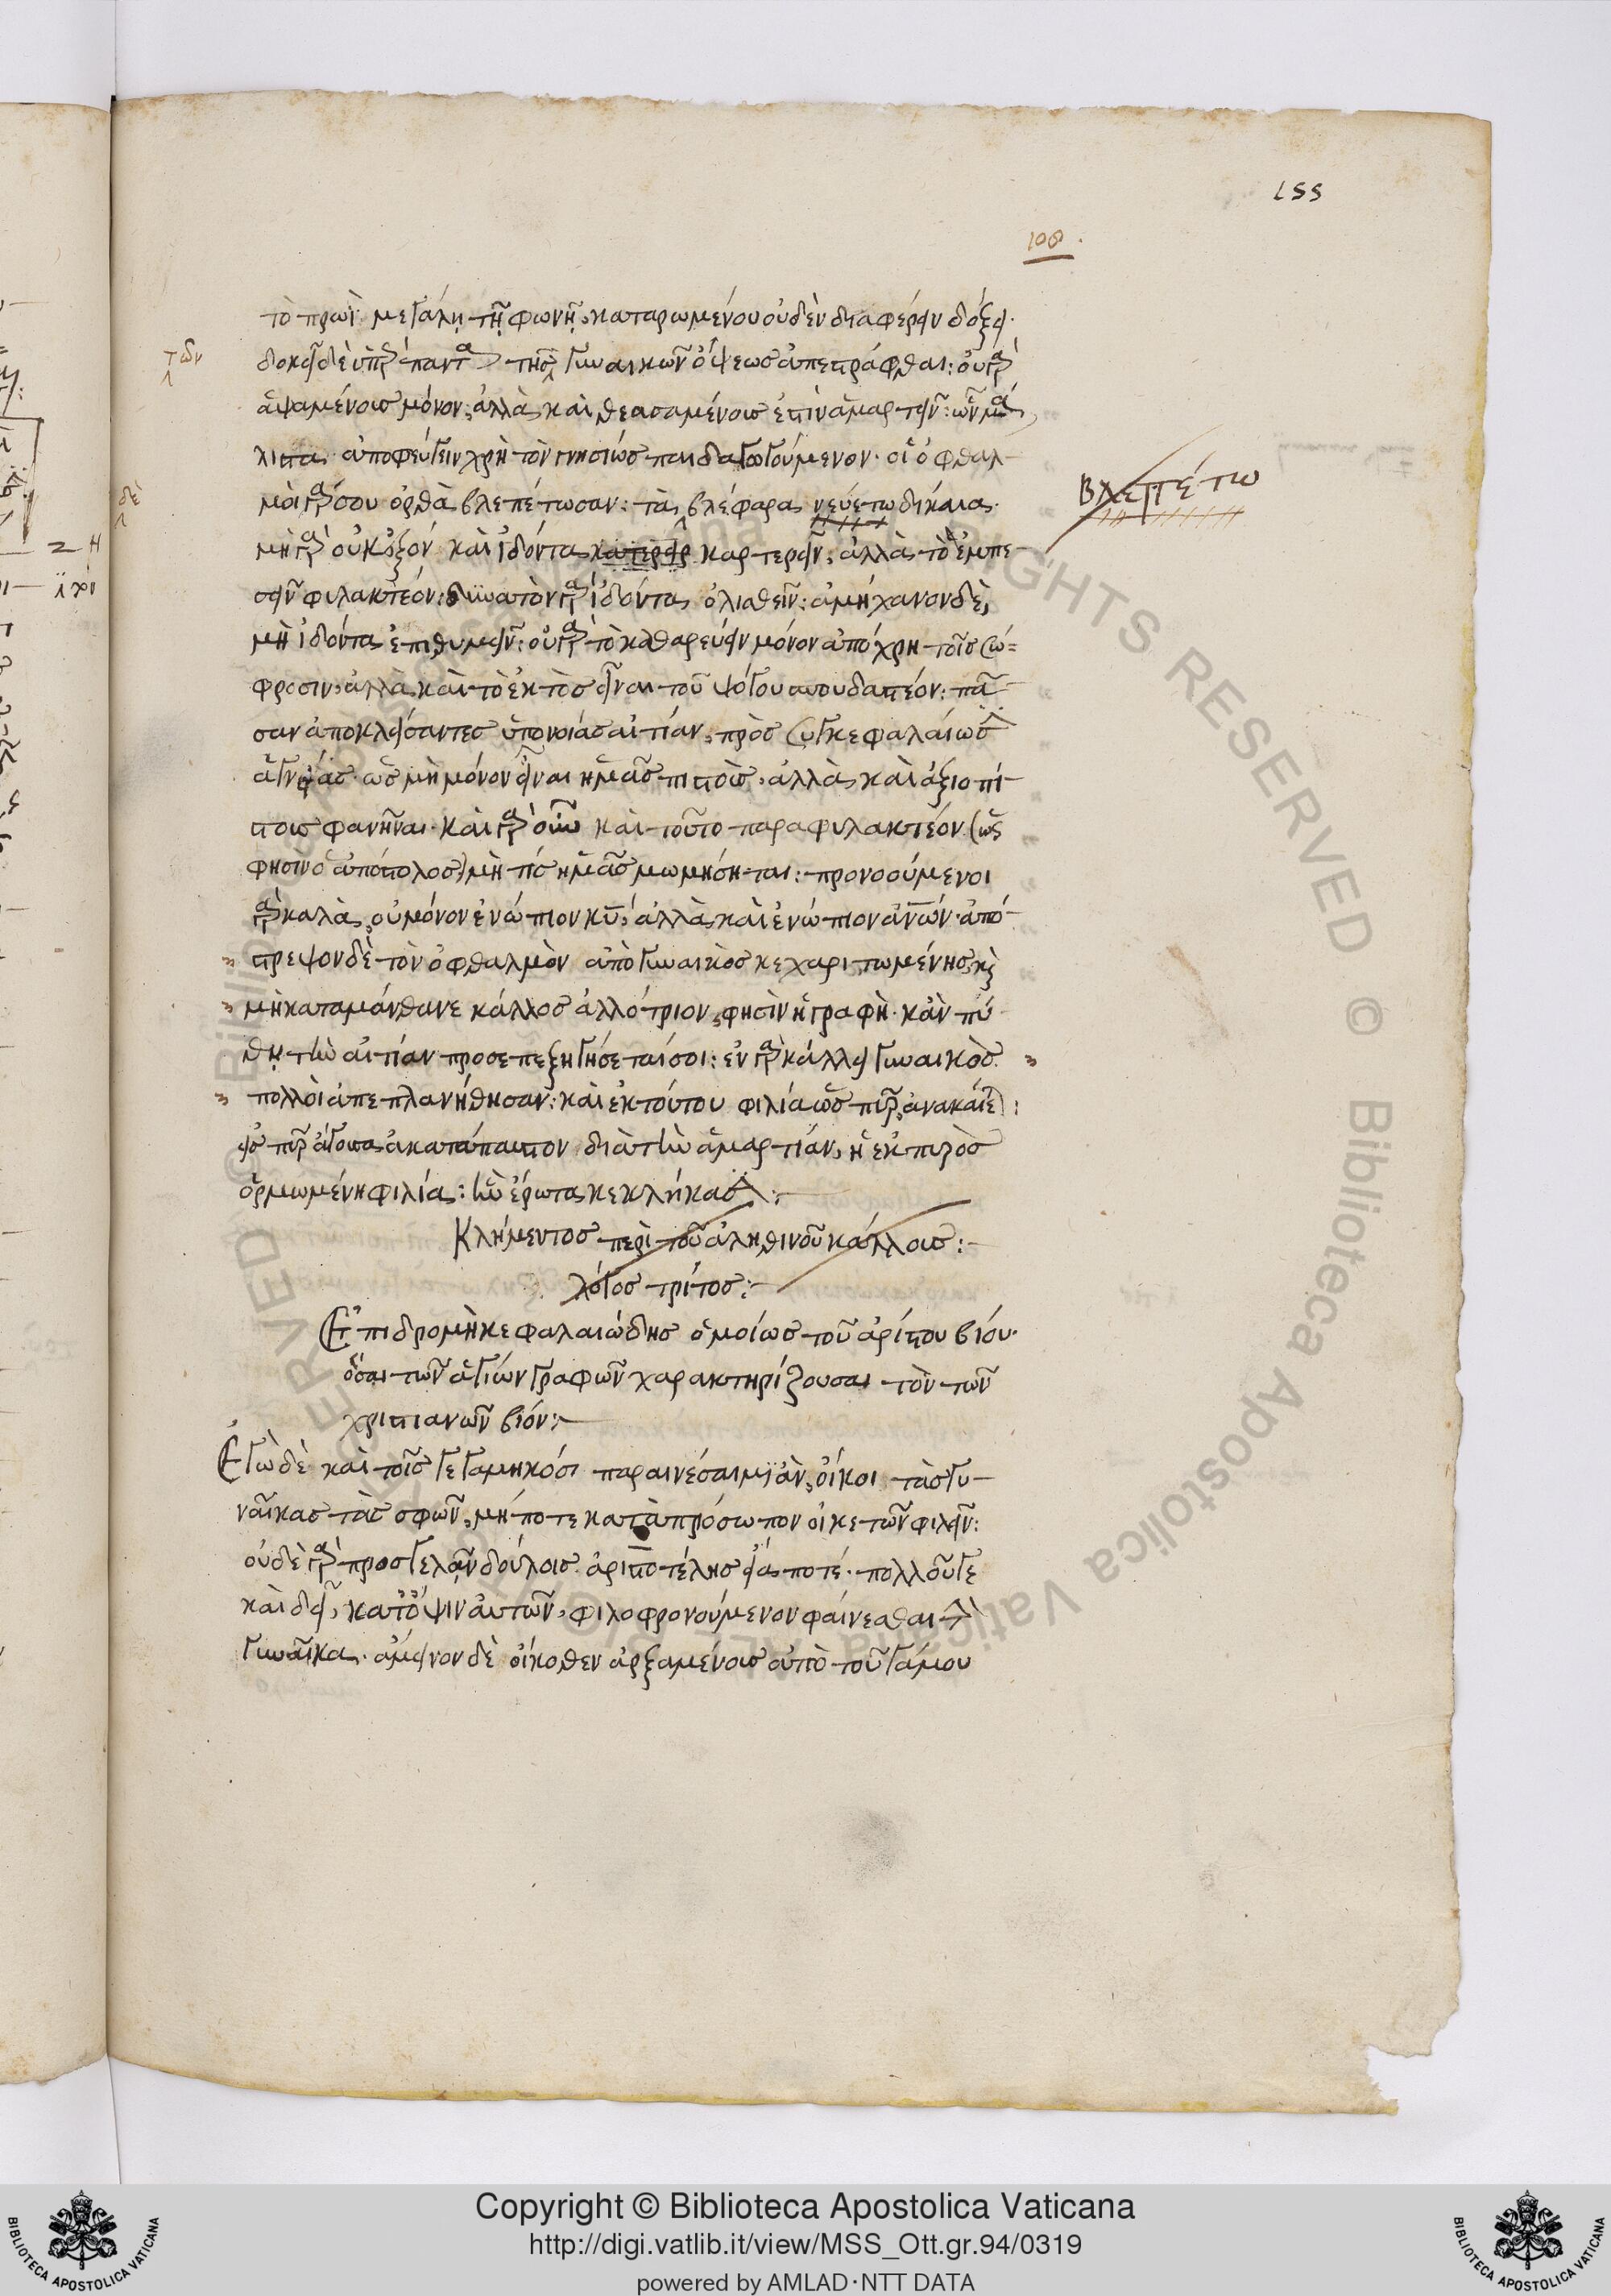 155
108.
τὸ πρωῒ μεγάλῃ τῇ φωνῇ, καταρωμένου οὐδὲν διαφέρειν δόξει.
τῶν
δοκεῖ δὲ ὑπὲρ ἅπαντα τῆς γυναικῶν ὄψεως ἀπεστράφθαι: οὐ γὰρ
ἁψαμένοις μόνον, ἀλλὰ καὶ θεασαμένοις ἐστὶν ἁμαρτεῖν: ὧν μά
λιστα ἀποφεύγειν χρὴ τὸν γνησίως παιδαγωγούμενον· οἱ ὀφθαλ
μοὶ γάρ σου ὀρθὰ βλεπέτωσαν: τὰ βλέφαρα νεύετω δίκαια.
δὲ
βλεπέτω
μὴ γὰρ οὐκ οἷόν καὶ ἰδόντα κατερεῖν καρτερεῖν, ἀλλὰ τὸ ἐμπε
σεῖν φυλακτέον: δυνατὸν γὰρ ἰδόντα ὀλισθεῖν: ἀμήχανον δὲ,
μὴ ἰδόντα ἐπιθυμεῖν: οὐ γὰρ τὸ καθαρεύειν μόνον ἀπόχρη τοῖς σώ=
φροσιν, ἀλλὰ καὶ τὸ ἐκτὸς εἶναι τοῦ ψόγου σπουδαστέον: πᾶ
σαν ἀποκλείσαντες ὑπονοίας αἰτίαν, πρὸς συγκεφαλαίωσιν
ἁγνείας· ὡς μὴ μόνον εἶναι ἡμᾶς πιστοὺς, ἀλλὰ καὶ ἀξιοπί
στους φανῆναι· καὶ γὰρ οὖν καὶ τοῦτο παραφυλακτέον (ὥς
φησὶν ὁ ἀπόστολος) μή τις ἡμᾶς μωμήσηται: προνοούμενοι
γὰρ καλὰ, οὐ μόνον ἐνώπιον κυ, ἀλλὰ καὶ ἐνώπιον ἀνῶν· ἀπό
στρεψον δὲ τὸν ὀφθαλμὸν ἀπὸ γυναικὸς κεχαριτωμένης, καὶ
μὴ καταμάνθανε κάλλος ἀλλότριον, φησὶν ἡ γραφὴ· κἂν πύ
θῃ τὴν αἰτίαν προσεπεξηγήσεταί σοι: ἐν γὰρ κάλλει γυναικὸς
πολλοὶ ἀπεπλανήθησαν: καὶ ἐκ τούτου φιλία ὡς πῦρ ἀνακαίεται:
εἰς πῦρ ἄγουσα ἀκατάπαυστον διὰ τὴν ἁμαρτίαν, ἡ ἐκ πυρὸς
ὁρμωμένη φιλία: ἣν ἔρωτα κεκλήκασιν:
Κλήμεντος περὶ τοῦ ἀληθινοῦ κάλλους:
λόγος τρίτος:
Ἐπιδρομὴ κεφαλαιώδης ὁμοίως τοῦ ἀρίστου βίου·
ὅσαι τῶν ἁγίων γραφῶν χαρακτηρίζουσαι τὸν τῶν
χριστιανῶν βίον:
Ἐγὼ δὲ καὶ τοῖς γεγαμηκόσι παραινέσαιμι ἂν, οἴκοι τὰς γυ
ναῖκας τὰς σφῶν, μή ποτε κατὰ πρόσωπον οἰκετῶν φιλεῖν:
οὐδὲ γὰρ προσγελᾶν δούλοις ἀριστοτέλης εἴα ποτέ· πολλοῦ γε
καὶ δεῖ, κατ' ὄψιν αὐτῶν, φιλοφρονούμενον φαίνεσθαι τὴν
γυναῖκα· ἄμεινον δὲ οἴκοθεν ἀρξαμένοις ἀπὸ τοῦ γάμου
Copyright © Biblioteca Apostolica Vaticana
http://digi.vatlib.it/view/MSS_Ott.gr.94/0319
powered by AMLAD·NTT DATA